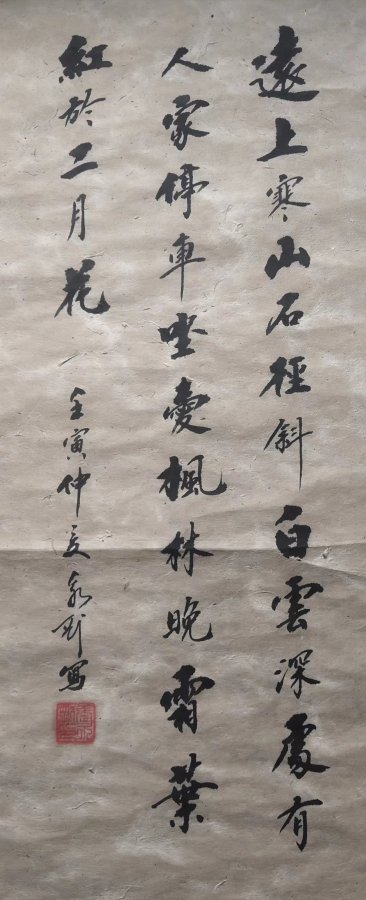 遠上寒山石徑斜白雲深處有
人家停車坐愛楓林晚霜葉
紅於二月花
壬寅仲夏寫